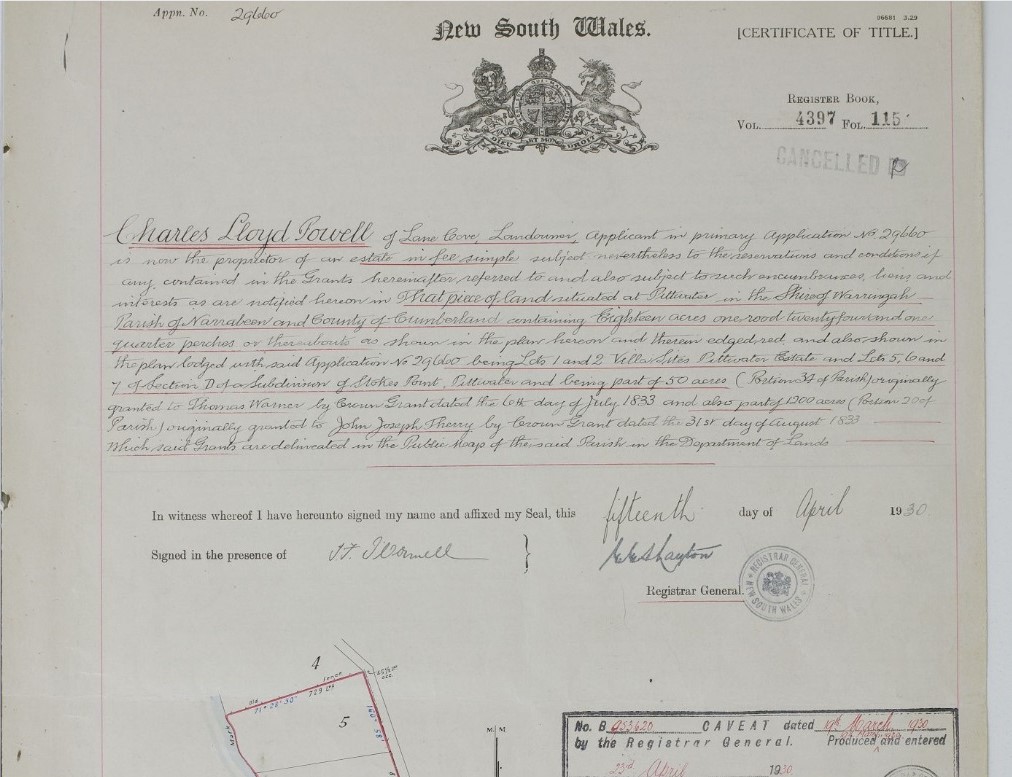 Appn. No. 29660
New South Wales.
06681 3.29
[CERTIFICATE OF TITLE.]
REGISTER BOOK,
VOL. 4397 FOL. 115
CANCELLED
DIEU ET MON DROIT
Charles Lloyd Powell of Lane Cove, Landowner, Applicant in primary Application No 29660
is now the proprietor of an estate in fee simple subject nevertheless to the reservations and conditions if
any contained in the Grants hereinafter referred to and also subject to such encumbrances, liens and
interests as are notified hereon in That piece of land situated at Pittwater in the Shire of Warringah
Parish of Narrabeen and County of Cumberland containing Eighteen acres one rood twenty four and one
quarter perches or thereabouts as shown in the plan hereon and therein edged red and also shown in
the plan lodged with said Application No 29660 being Lots 1 and 2 Villa Sites Pittwater Estate and Lots 5, 6 and
7 of Section D of a Subdivision of Stokes Point, Pittwater and being part of 50 acres (Portion 34 of Parish) originally
granted to Thomas Warner by Crown Grant dated the 6th day of July 1833 and also part of 1200 acres (Portion 20 of
Parish) originally granted to John Joseph Therry by Crown Grant dated the 31st day of August 1833
Which said Grants are delineated in the Public Maps of the said Parish in the Department of Lands
In witness whereof I have hereunto signed my name and affixed my Seal, this fifteenth day of April 1930.
Signed in the presence of
Registrar General.
REGISTRAR GENERAL
NEW SOUTH WALES
4
Old Fence
71° 28' 30" 729
5
No. B CAVEAT dated 19th March 1930
by the Registrar General. Produced and entered
23rd April 1930